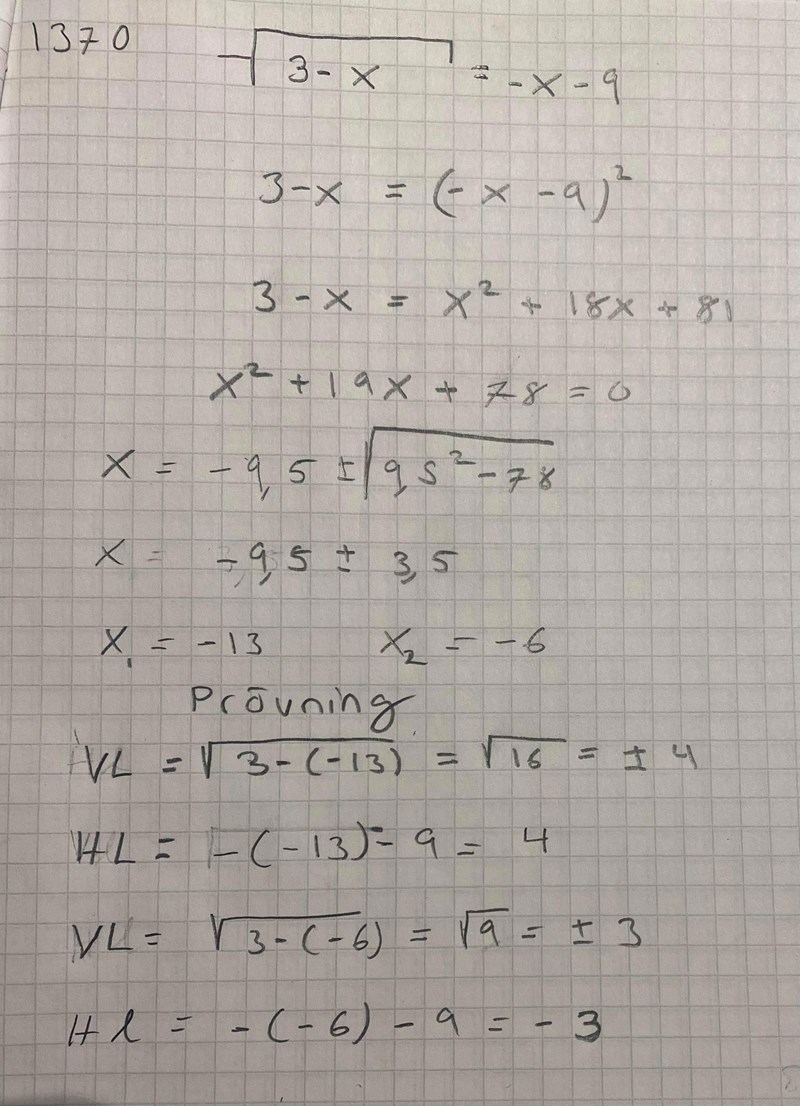 1370 √(3-x) = -x-9
3-x = (-x-9)²
3-x = x² + 18x + 81
x² + 19x + 78 = 0
x = -9,5 ± √(9,5² - 78)
x = -9,5 ± 3,5
x₁ = -13 x₂ = -6
Prövning
VL = √(3-(-13)) = √16 = ±4
HL = -(-13) - 9 = 4
VL = √(3-(-6)) = √9 = ±3
HL = -(-6) - 9 = -3